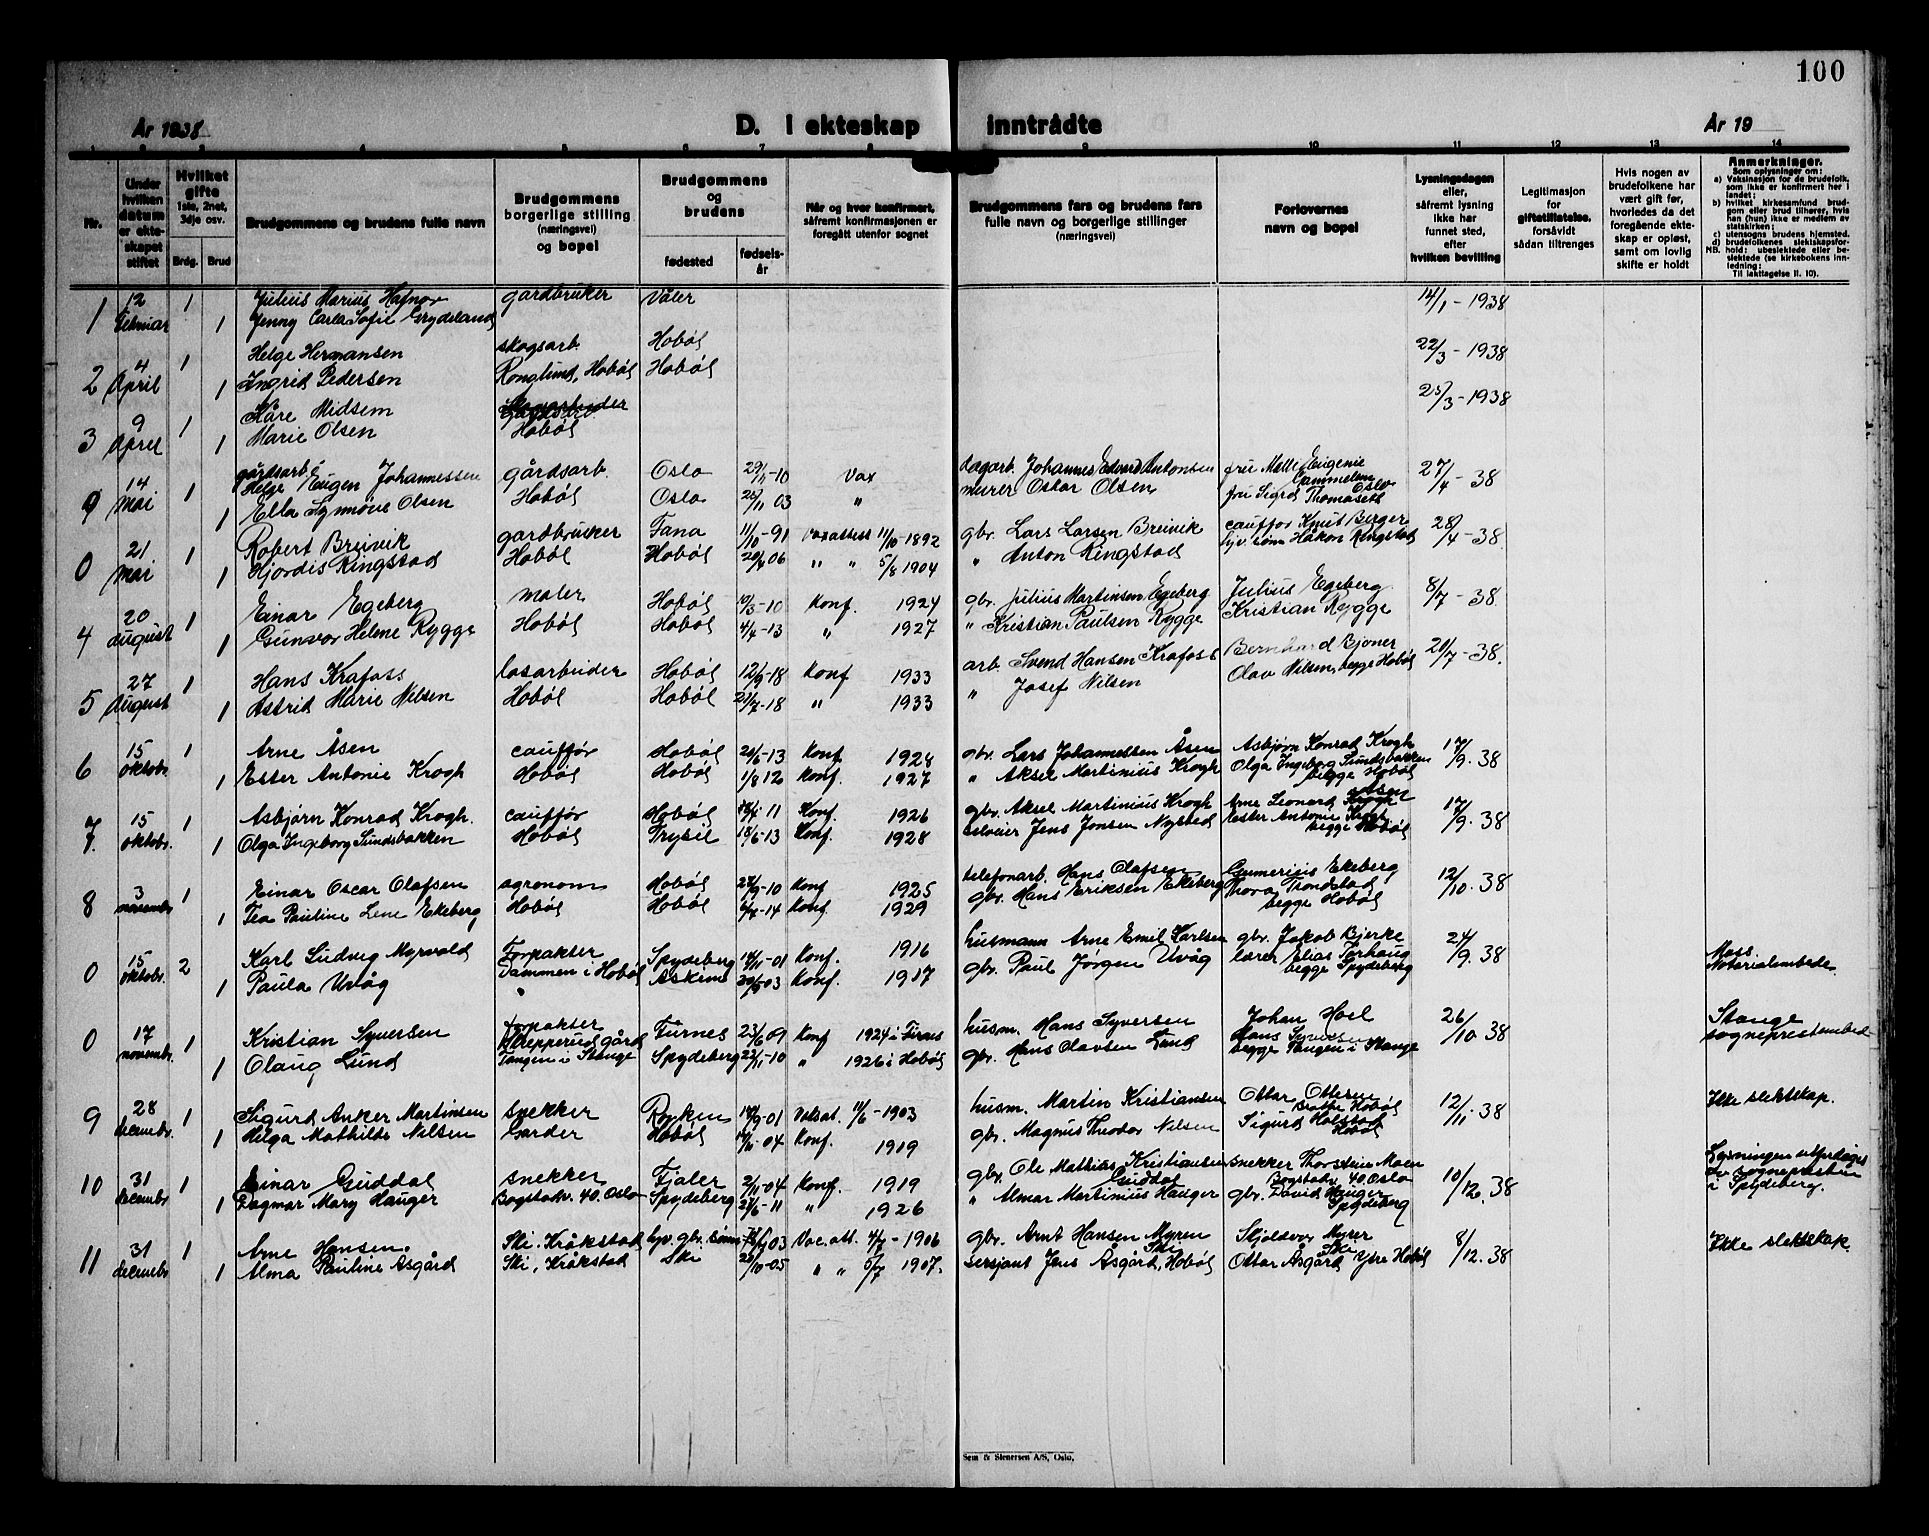 100
År 1938
D. I ekteskap inntrådte
År 19
1 2 3 4 5 6 7 8 9 10 11 12 13 14
Nr.
Under hvilken datum er ekteskapet stiftet
Hvilket gifte 1ste, 2net, 3dje osv.
Brdg.
Brud
Brudgommens og brudens fulle navn
Brudgommens borgerlige stilling (næringsvei) og bopel
Brudgommens og brudens
fødested
fødselsår
Når og hvor konfirmert, såfremt konfirmasjonen er foregått utenfor sognet
Brudgommens fars og brudens fars fulle navn og borgerlige stillinger (næringsvei)
Forlovernes navn og bopel
Lysningsdagen eller, såfremt lysning ikke har funnet sted, efter hvilken bevilling
Legitimasjon for giftetillatelse, forsåvidt sådan tiltrenges
Hvis nogen av brudefolkene har vært gift før, hvorledes da det foregående ekteskap er opløst, samt om lovlig skifte er holdt
Anmerkninger.
Som oplysninger om:
a) Vaksinasjon for de brudefolk, som ikke er konfirmert her i landet;
b) hvilket kirkesamfund brudgom eller brud tilhører, hvis han (hun) ikke er medlem av statskirken;
c) utensogns brudens hjemsted.
d) brudefolkenes slektskapsforhold: ubeslektede eller beslektede (se kirkebokens innledning:
NB. Til iakttagelse II. 10).
1 12 Februar 1 Julius Marius Hafnor gardbruker Våler 14/1 - 1938
1 Jenny Carla Sofie Grydeland
2 4 April 1 Helge Hermansen skogsarb. Hobøl 22/3 - 1938
1 Ingrid Pedersen Ronglund, Hobøl Hobøl
3 9 April 1 Kåre Midsem 25/3 - 1938
1 Marie Olsen Hobøl
9 14 Mai 1 gårdsarb. Helge Eugen Johannessen gårdsarb. Oslo 29/11-10 Vax dagarb. Johannes Edvard Antonsen fru Mette Eugenie Gammelsen Oslo 27/4 - 38
1 Ella Synnøve Olsen Hobøl Oslo 25/11 03 " murer Oskar Olsen fru Sigrd Thomaseth
0 21 Mai 1 Robert Breivik gardbruker Fana 11/10-91 Vaxattest 11/10-1892 gbr. Lars Larsen Breivik cauffør Knut Berger 28/4 - 38
1 Hjørdis Ringstad Hobøl Hobøl 20/4 06 " " 5/8 1904 " Anton Ringstad Håkon Ringstad
4 20 August 1 Einar Egeberg maler Hobøl 19/3-10 Konf. 1924 gbr. Julius Martinsen Egeberg Julius Egeberg 8/7 - 38
1 Gunvor Helene Rygge Hobøl Hobøl 4/4-13 " 1927 " Kristian Paulsen Rygge Kristian Rygge
5 27 August 1 Hans Krafoss løsarbeider Hobøl 12/9-18 Konf 1933 arb. Svend Hansen Krafoss Bernhard Bjoner 21/7 - 38.
1 Astrid Marie Nilsen Hobøl Hobøl 21/7-18 " 1933 " Josef Nilsen Olav Nilsen, begge Hobøl
6 15 oktobr. 1 Arne Åsen cauffør Hobøl 21/5-13 Konf 1928 gbr. Lars Johannessen Åsen Asbjørn Konrad Krogh 17/9. 38
1 Ester Antonie Krogh Hobøl Hobøl 1/8 12 Konf. 1927 " Aksel Martinius Krogh Olga Ingeborg Sundsbakken begge Hobøl
7. 15 oktobr. 1 Asbjørn Konrad Krogh. cauffør Hobøl 11 Konf. 1926 gbr. Aksel Martinius Krogh Arne Leonard Åsen 17/9. 38
1 Olga Ingeborg Sundsbakken Hobøl Trysil 18/6-13 Konf. 1928 selveier Jens Jonsen Nysted Ester Antonie Krogh begge Hobøl
8 3 novembr 1 Einar Oscar Olafsen agronom Hobøl 27/9-10 Konf 1925 telefonarb. Hans Olafsen Gunnerius Ekeberg 12/10. 38
1 Tea Pauline Lene Ekeberg Hobøl Hobøl 4/4-14 Konf. 1929 gbr. Hans Eriksen Ekeberg Thora Trondstad begge Hobøl
0 15 oktobr. 2 Karl Ludvig Myrvold Forpakter Spydeberg 14/11-01 Konf. 1916 husmann Arne Emil Karlsen gbr. Jakob Bjerke 24/9. 38 Moss Notarialembede
1 Paula Uvåg Dammen i Hobøl Askim 30/5 03 Konf. 1917 gbr. Paul Jørgen Uvåg lærer Elias Torhaug begge Spydeberg
0 17 novembr. 1 Kristian Syversen forpakter Klepperud gård Furnes 23/6 09 Konf 1924 i Furnes husm. Hans Syversen Johan Hoel 26/10 38 Stange sogneprestembed
1 Olaug Lund Tangen i Stange Spydeberg 22/11-10 " 1926 i Hobøl gbr. Hans Olavsen Lund Hans Syversen begge Tangen i Stange
9 28 decembr. 1 Sigurd Anker Martinsen snekker Røyken 14/9-01 11/6 - 1903 husm. Martin Kristiansen Ottar Ottersen Hobøl 12/11. 38 Ikke slektskap.
1 Helga Mathilde Nilsen Garder Hobøl 04 Konf. 1919 gbr. Magnus Theodor Nilsen Sigurd Holstad Hobøl
10 31 decembr 1 Einar Guddal snekker Fjaler 2/11-04 Konf. 1919 gbr. Ole Mathias Kristiansen Guddal snekker Thorstein Moen Bogstadv. 40 Oslo 10/12. 38 Lysningen utferdiget av sognepresten i Spydeberg.
1 Dagmar Mary Hauger Bogstadv. 40. Oslo Spydeberg 21/6-11 " 1926 " Almar Martinius Hauger gbr. David Hauger Spydeberg
11 31 decembr 1 Arne Hansen. Ski. Kråkstad 03 Vac. att. 4/7 - 1906 gbr. Arnt Hansen Myren Ski Skjoldvor Myrer Ski 8/12. 38 Ikke slektskap.
1 Alma Pauline Åsgård Ski, Kråkstad Ski 22/10-05 " " 5/7 1907. sersjant Jens Åsgård, Hobøl Ottar Åsgård Ytre Hobøl
Sem & Stenersen A/S, Oslo.